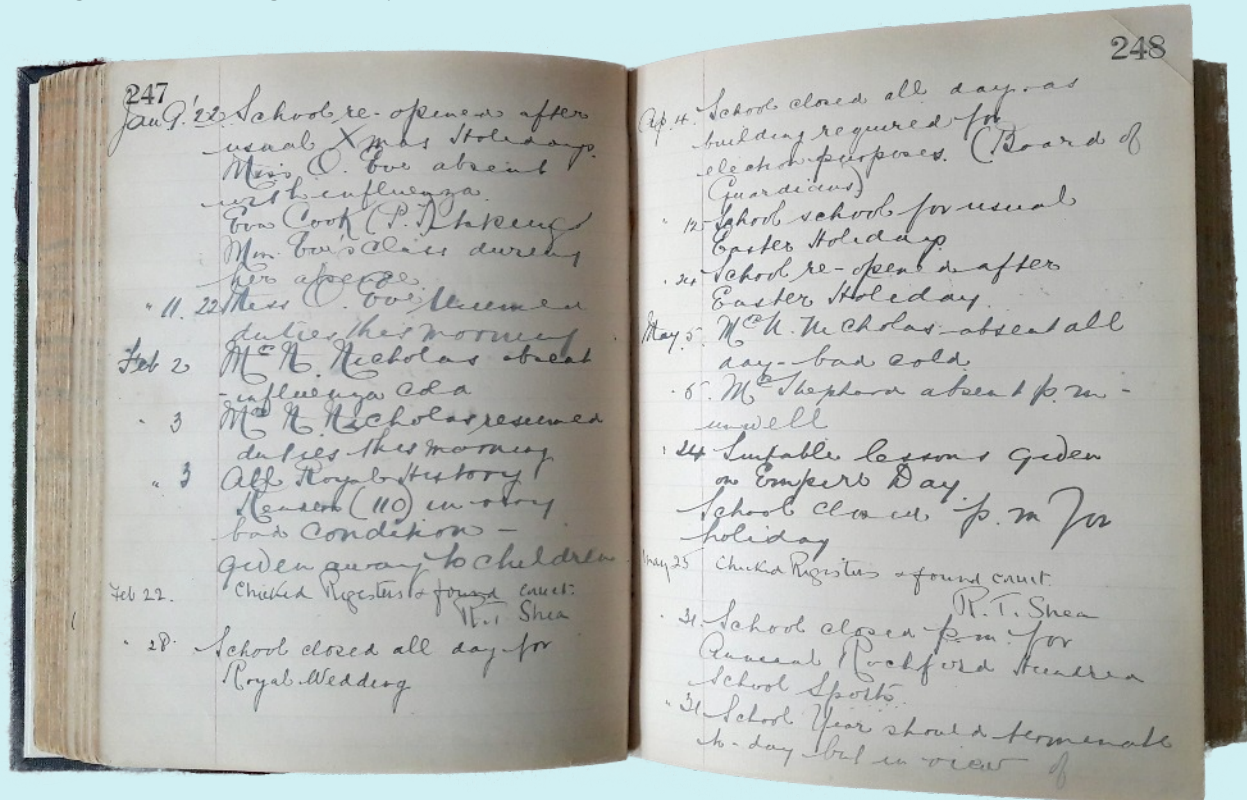 247
Jan 9. '22. School re-opened after
usual Xmas Holidays.
Miss O. Eve absent
with influenza.
Eva Cook (P.T.) taking
Miss Eve's class during
her absence.
" 11. 22 Miss O. Eve resumed
duties this morning
Feb 2 Mr N. Nicholas absent
- influenza cold
" 3 Mr N. Nicholas resumed
duties this morning
" 3 All Royal History
Readers (110) in very
bad condition -
given away to children
Feb 22. Checked Registers & found correct.
R.T. Shea
" 28. School closed all day for
Royal Wedding
248
Ap. 4. School closed all day as
building required for
election purposes. (Board of
Guardians)
" 12 School school for usual
Easter Holidays.
" 24 School re-opened after
Easter Holiday.
May 5. Mr N. Nicholas absent all
day - bad cold.
" 5. Mr Shephard absent p.m -
unwell
" 24 Suitable lessons given
on Empire Day.
School closed p.m for
holiday
May 25 Checked Registers & found correct
R.T. Shea
" 31. School closed p.m for
Annual Rochford Hundred
School Sports.
" 31 School Year should terminate
to-day but in view of